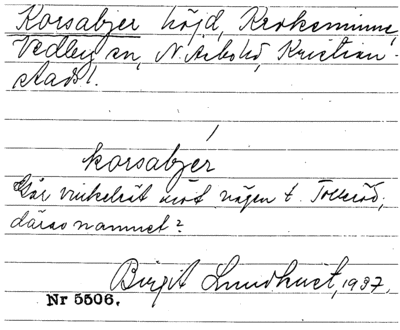 Korsabjer höjd, Krokeminne,
Vedby sn, N. Åsbo hd, Kristian-
stads l.
korsabjer
Går vinkelrät mot vägen t. Tolleröd,
därav namnet?
Birgit Lundquist, 1937.
Nr 5506.